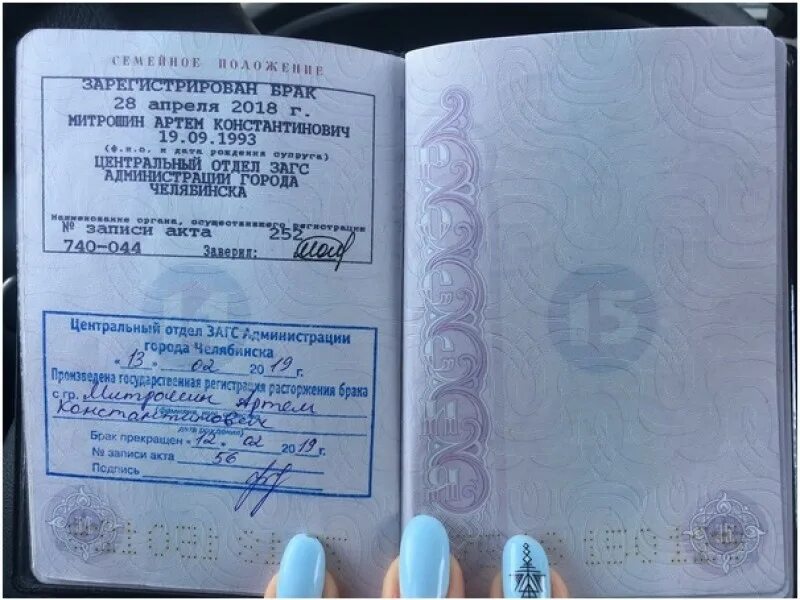 СЕМЕЙНОЕ ПОЛОЖЕНИЕ
ЗАРЕГИСТРИРОВАН БРАК
28 апреля 2018 г.
МИТРОШИН АРТЕМ КОНСТАНТИНОВИЧ
19.09.1993
(ф.и.о. и дата рождения супруга)
ЦЕНТРАЛЬНЫЙ ОТДЕЛ ЗАГС
АДМИНИСТРАЦИИ ГОРОДА
ЧЕЛЯБИНСКА
Наименование органа, осуществившего регистрацию
№ записи акта 252
740-044 Заверил:
14
Центральный отдел ЗАГС Администрации
города Челябинска
"13" 02 2019 г.
Произведена государственная регистрация расторжения брака
с гр. Митрошин Артем
Константинович
Брак прекращен "12" 02 2019 г.
№ записи акта 56
Подпись
15